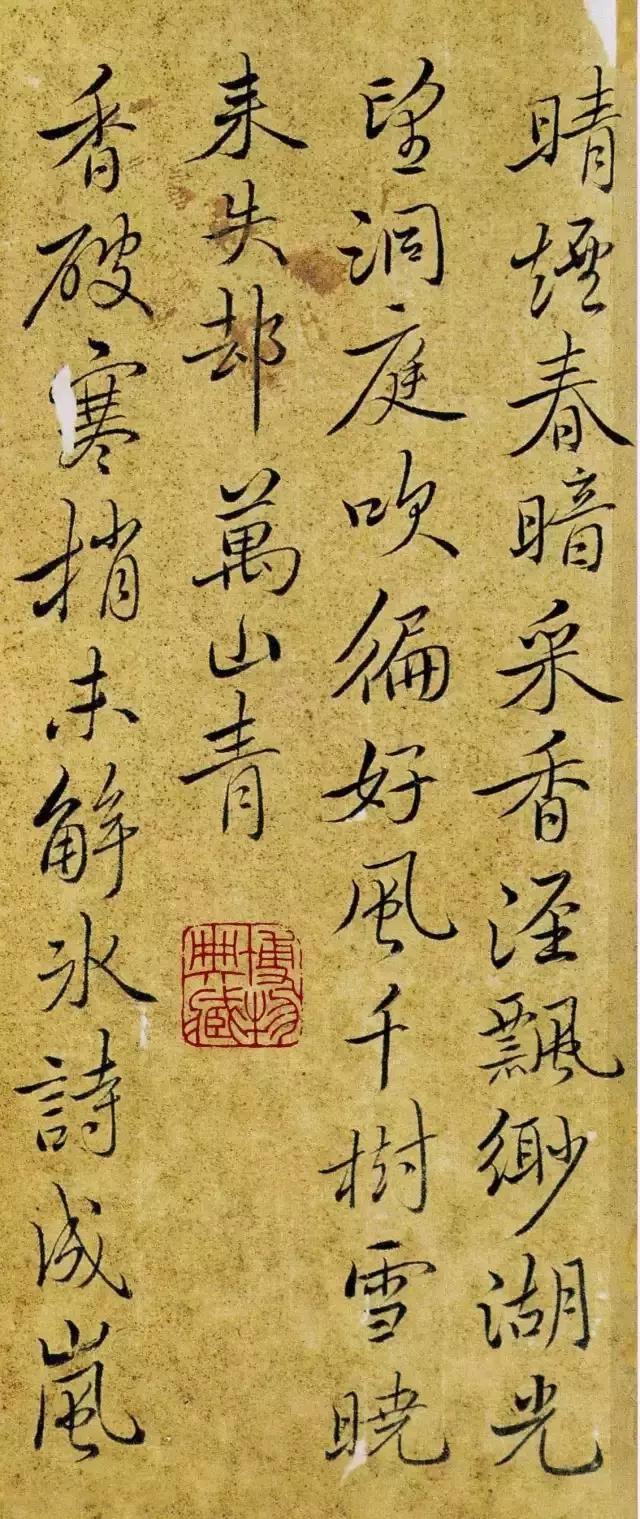 晴煙春暗采香涇飄緲湖光
望洞庭吹徧好風千樹雪曉
来失却萬山青
博物
典藏
香破寒梢未解冰詩成嵐